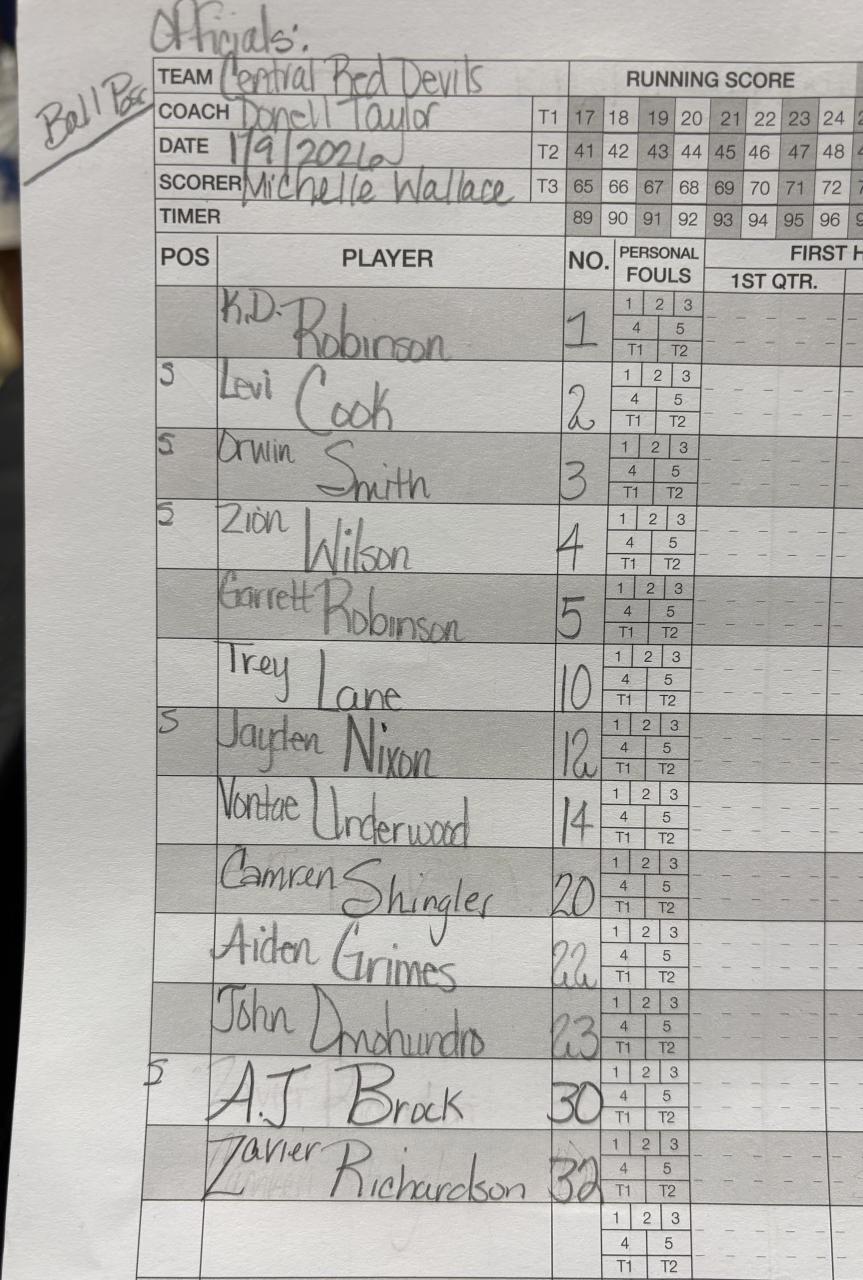 Officials:
Ball Poss
TEAM Central Red Devils RUNNING SCORE
COACH Donell Taylor T1 17 18 19 20 21 22 23 24
DATE 1/9/2026 T2 41 42 43 44 45 46 47 48
SCORER Michelle Wallace T3 65 66 67 68 69 70 71 72
TIMER 89 90 91 92 93 94 95 96
POS PLAYER NO. PERSONAL FOULS FIRST H
1ST QTR.
K.D. Robinson 1 1 2 3
4 5
T1 T2
S Levi Cook 2 1 2 3
4 5
T1 T2
S Orwin Smith 3 1 2 3
4 5
T1 T2
S Zion Wilson 4 1 2 3
4 5
T1 T2
Garrett Robinson 5 1 2 3
4 5
T1 T2
Trey Lane 10 1 2 3
4 5
T1 T2
S Jayden Nixon 12 1 2 3
4 5
T1 T2
Vontae Underwood 14 1 2 3
4 5
T1 T2
Camren Shingler 20 1 2 3
4 5
T1 T2
Aiden Grimes 22 1 2 3
4 5
T1 T2
John Dmohundro 23 1 2 3
4 5
T1 T2
S A.J Brock 30 1 2 3
4 5
T1 T2
Zavier Richardson 32 1 2 3
4 5
T1 T2
1 2 3
4 5
T1 T2